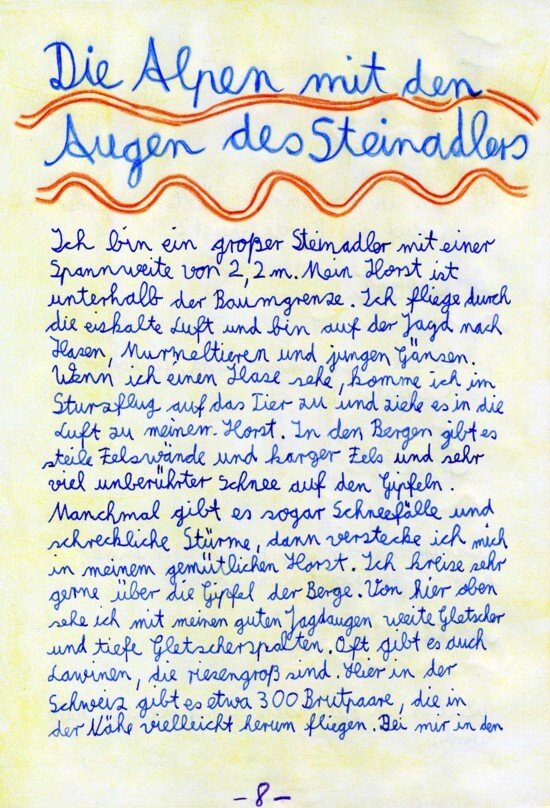 Die Alpen mit den
Augen des Steinadlers
Ich bin ein großer Steinadler mit einer
Spannweite von 2,2 m. Mein Horst ist
unterhalb der Baumgrenze. Ich fliege durch
die eiskalte Luft und bin auf der Jagd nach
Hasen, Murmeltieren und jungen Gänsen.
Wenn ich einen Hase sehe, komme ich im
Sturzflug auf das Tier zu und ziehe es in die
Luft zu meinem Horst. In den Bergen gibt es
steile Felswände und karger Fels und sehr
viel unberührter Schnee auf den Gipfeln.
Manchmal gibt es sogar Schneefälle und
schreckliche Stürme, dann verstecke ich mich
in meinem gemütlichen Horst. Ich kreise sehr
gerne über die Gipfel der Berge. Von hier oben
sehe ich mit meinen guten Jagdaugen weite Gletscher
und tiefe Gletscherspalten. Oft gibt es auch
Lawinen, die riesengroß sind. Hier in der
Schweiz gibt es etwa 300 Brutpaare, die in
der Nähe vielleicht herum fliegen. Bei mir in den
- 8 -